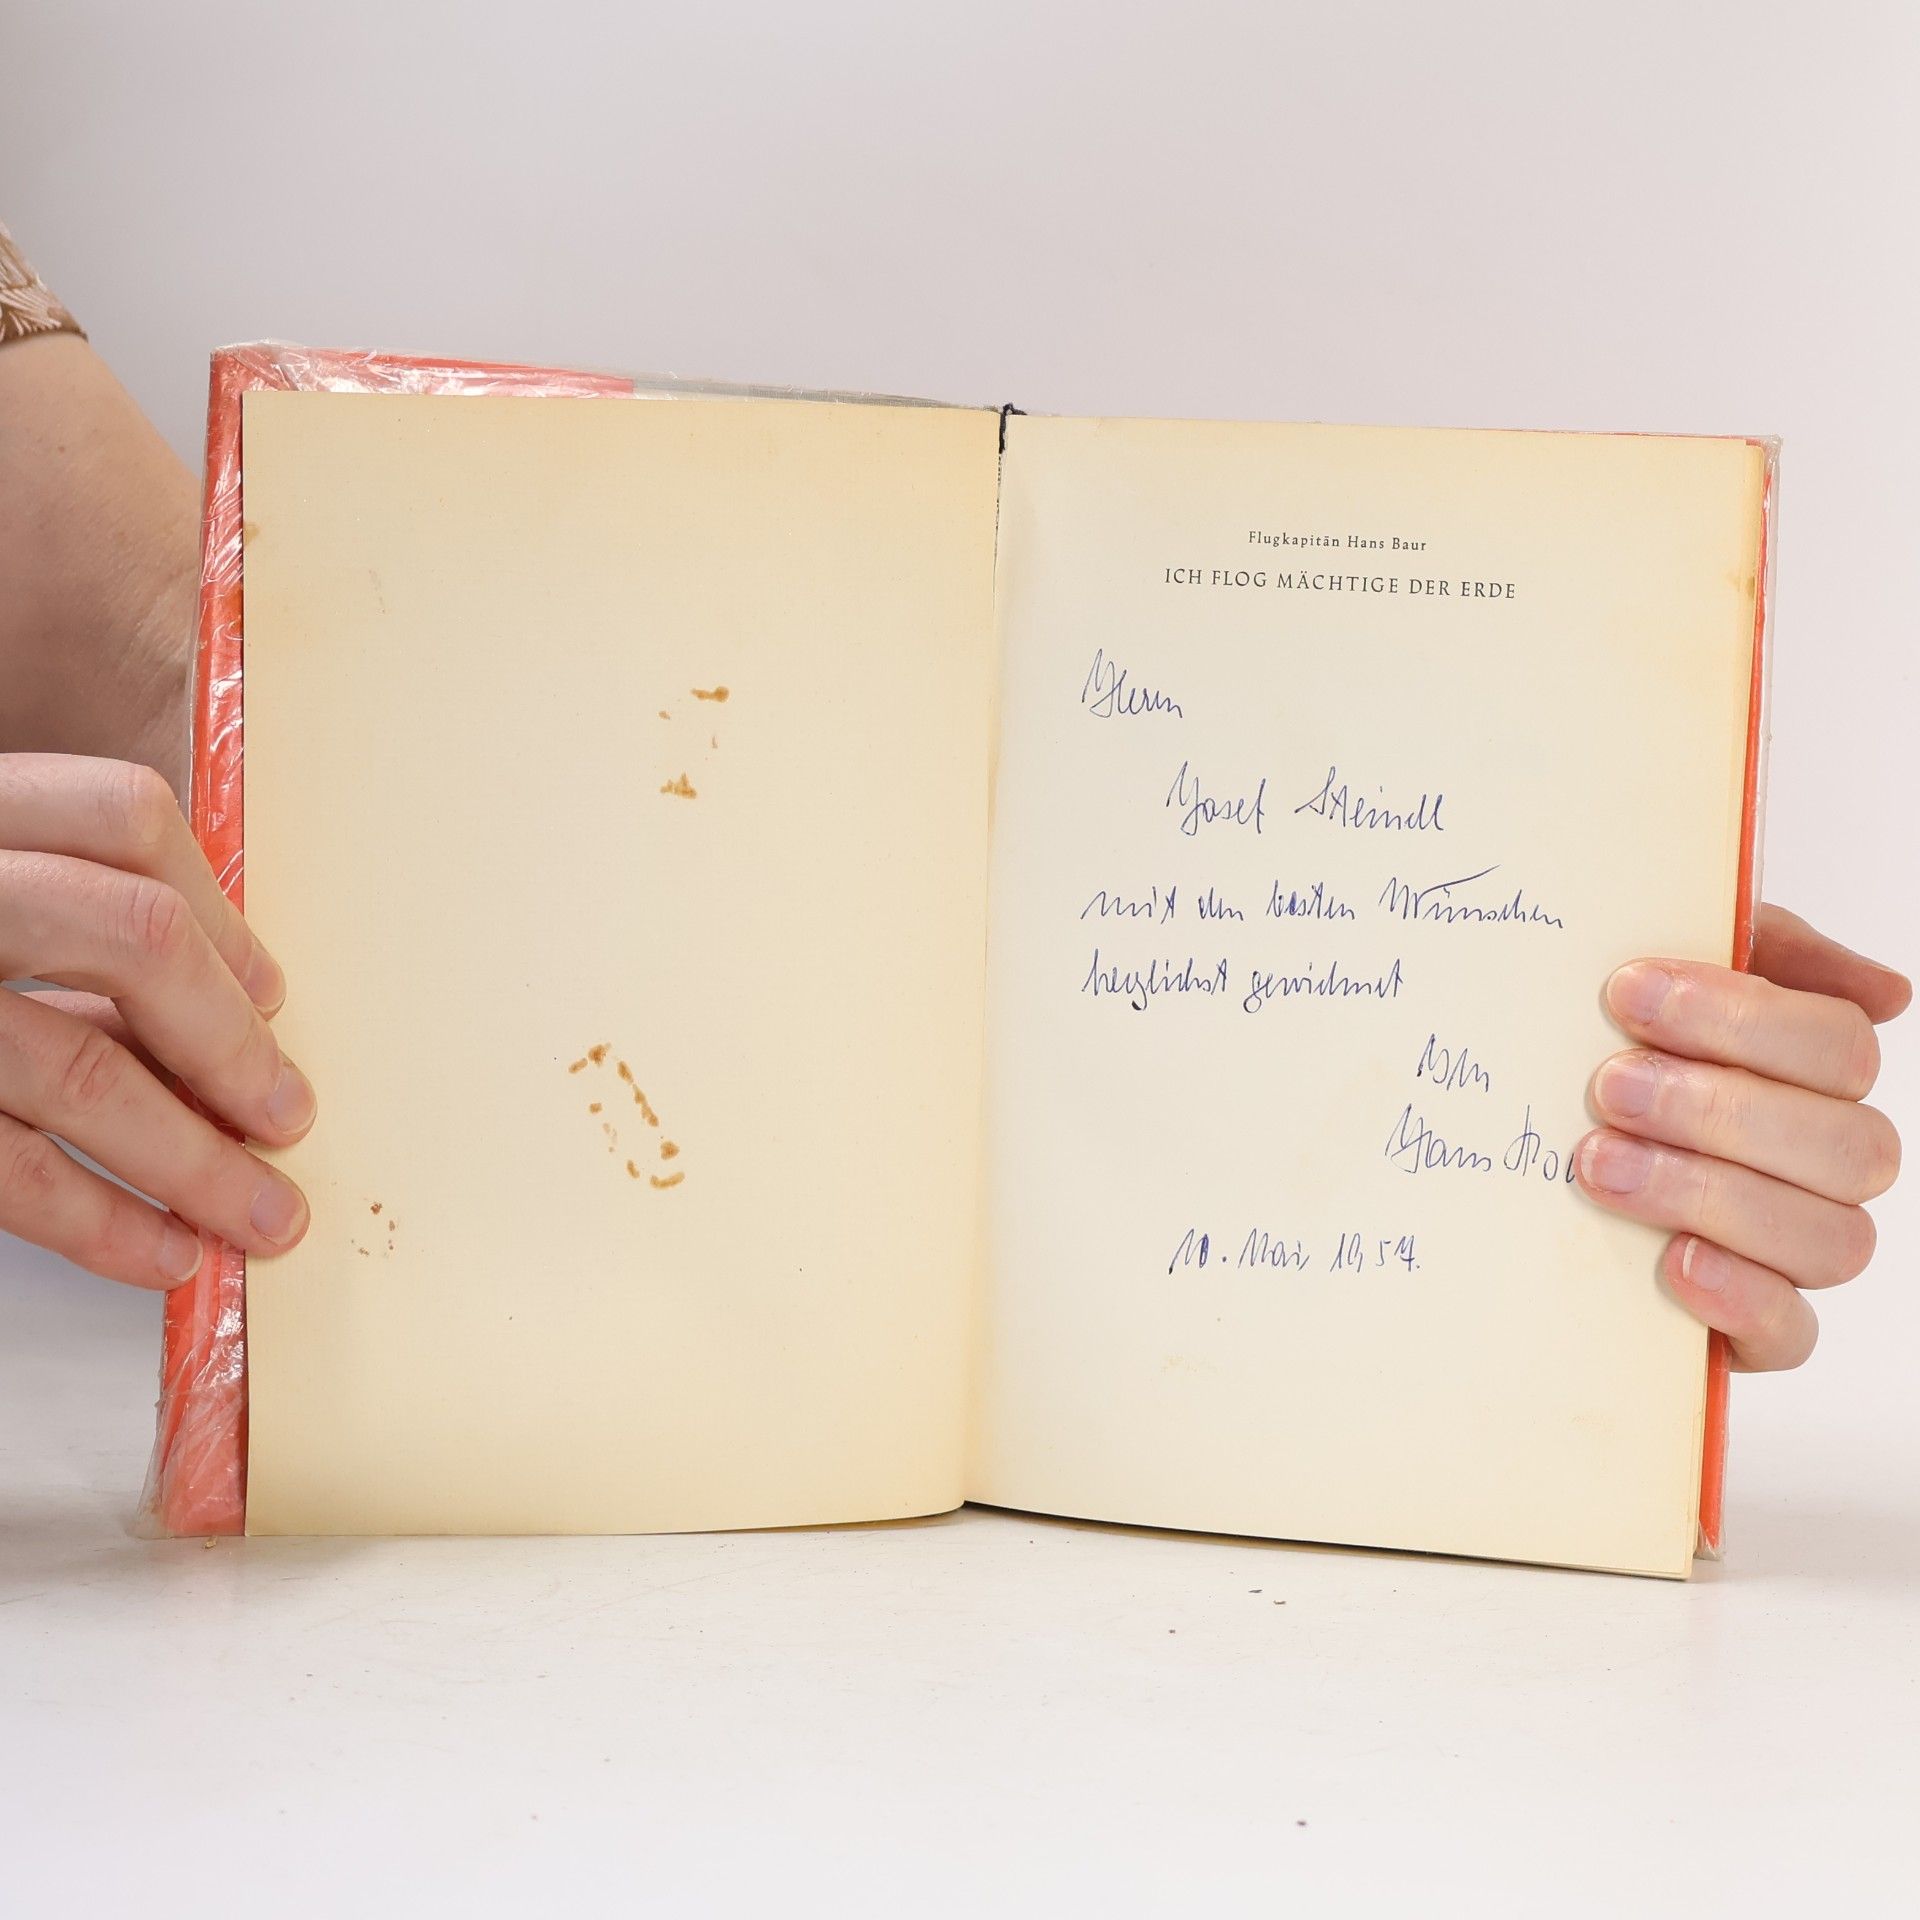 Flugkapitän Hans Baur
ICH FLOG MÄCHTIGE DER ERDE
Herrn
Josef Steindl
mit den besten Wünschen
herzlichst gewidmet
Ihr
Hans
10. Mai 1957.